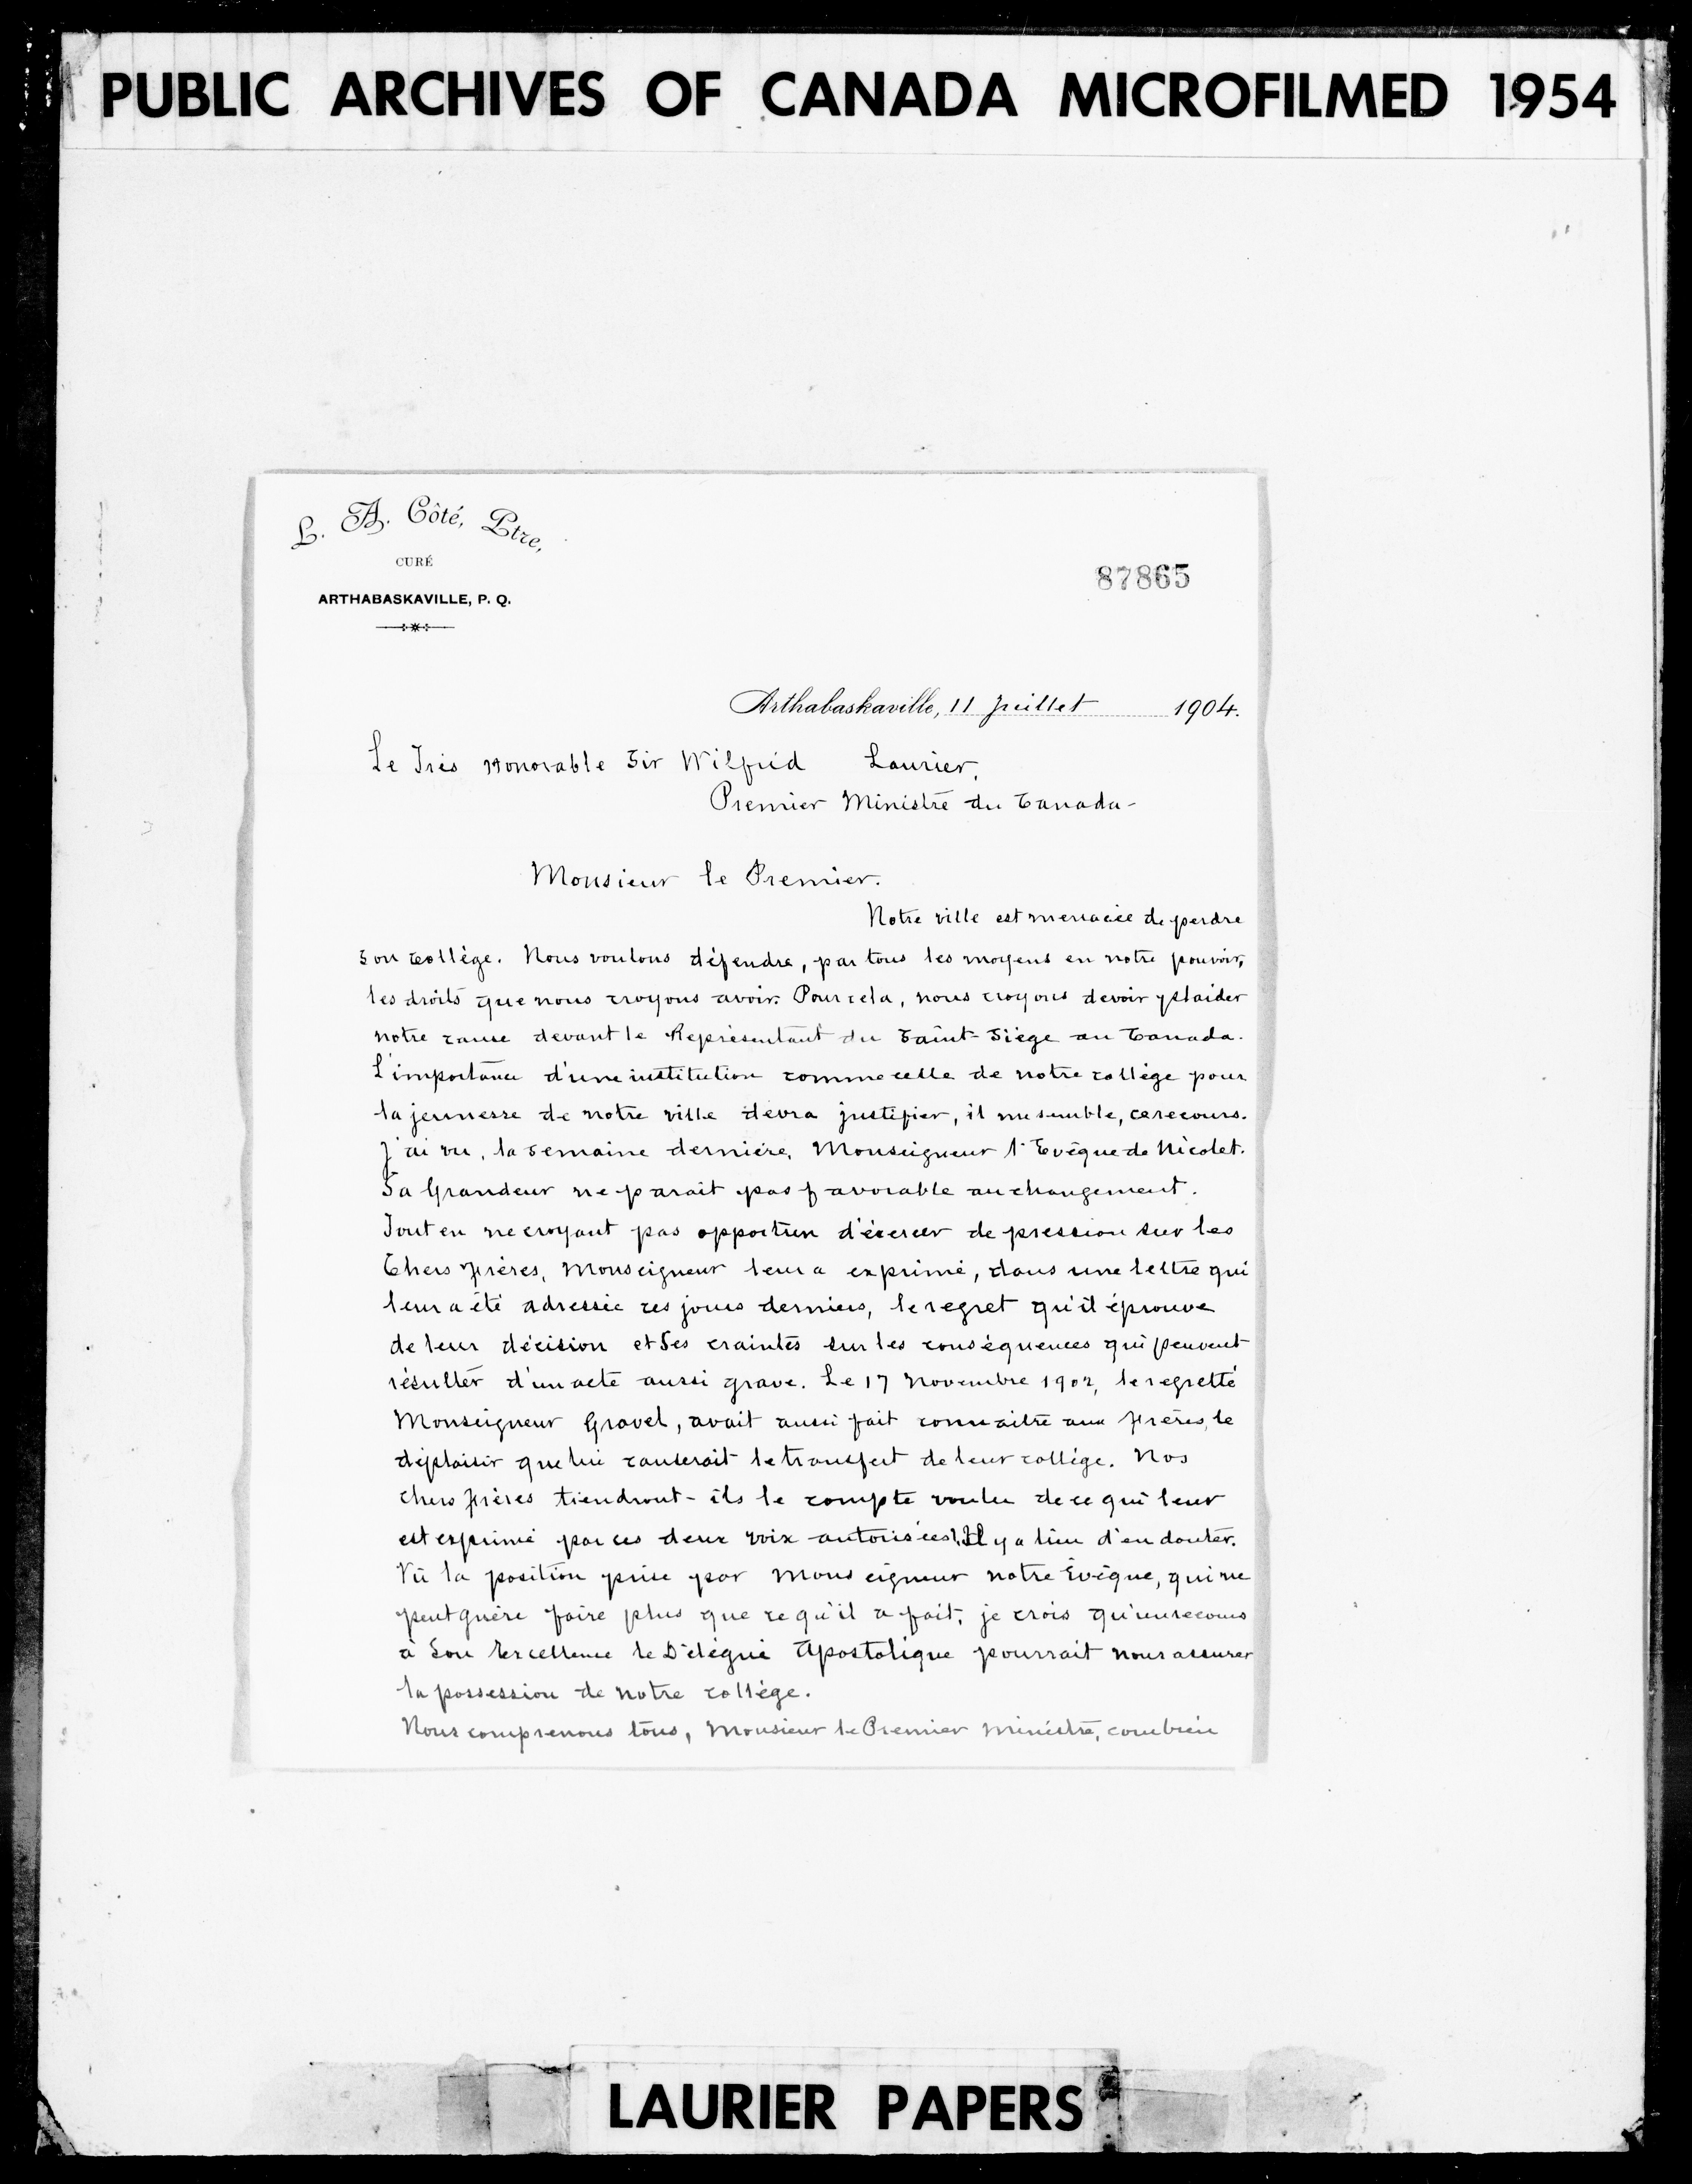 PUBLIC ARCHIVES OF CANADA MICROFILMED 1954
L. A. Côté, Ptre,
CURÉ
ARTHABASKAVILLE, P. Q.
87865
Arthabaskaville, 11 Juillet 1904.
Le Très Honorable Sir Wilfrid Laurier,
Premier Ministre du Canada-
Monsieur le Premier.
Notre ville est menacée de perdre
son collège. Nous voulons défendre, par tous les moyens en notre pouvoir,
les droits que nous croyons avoir. Pour cela, nous croyons devoir plaider
notre cause devant le Représentant du Saint-Siège au Canada.
L'importance d'une institution comme celle de notre collège pour
la jeunesse de notre ville devra justifier, il me semble, ce recours.
J'ai vu, la semaine dernière, Monseigneur l'Evêque de Nicolet.
Sa Grandeur ne parait pas favorable au changement.
Tout en ne croyant pas opportun d'éxercer de pression sur les
Chers Frères, Monseigneur leur a exprimé, dans une lettre qui
leur a été adressée ces jours derniers, le regret qu'il éprouve
de leur décision et Ses craintes sur les conséquences qui peuvent
résulter d'un acte aussi grave. Le 17 Novembre 1902, le regretté
Monseigneur Gravel, avait aussi fait connaitre aux Frères, le
déplaisir que lui causerait le transfert de leur collège. Nos
chers Frères tiendront-ils le compte voulu de ce qui leur
est exprimé par ces deux voix autorisées? Il y a lieu d'en douter.
Vû la position prise par Monseigneur notre Evêque, qui ne
peut guère faire plus que ce qu'il a fait, je crois qu'un recours
à Son Excellence le Délégué Apostolique pourrait nous assurer
la possession de notre collège.
Nous comprenons tous, Monsieur le Premier Ministre, combien
LAURIER PAPERS